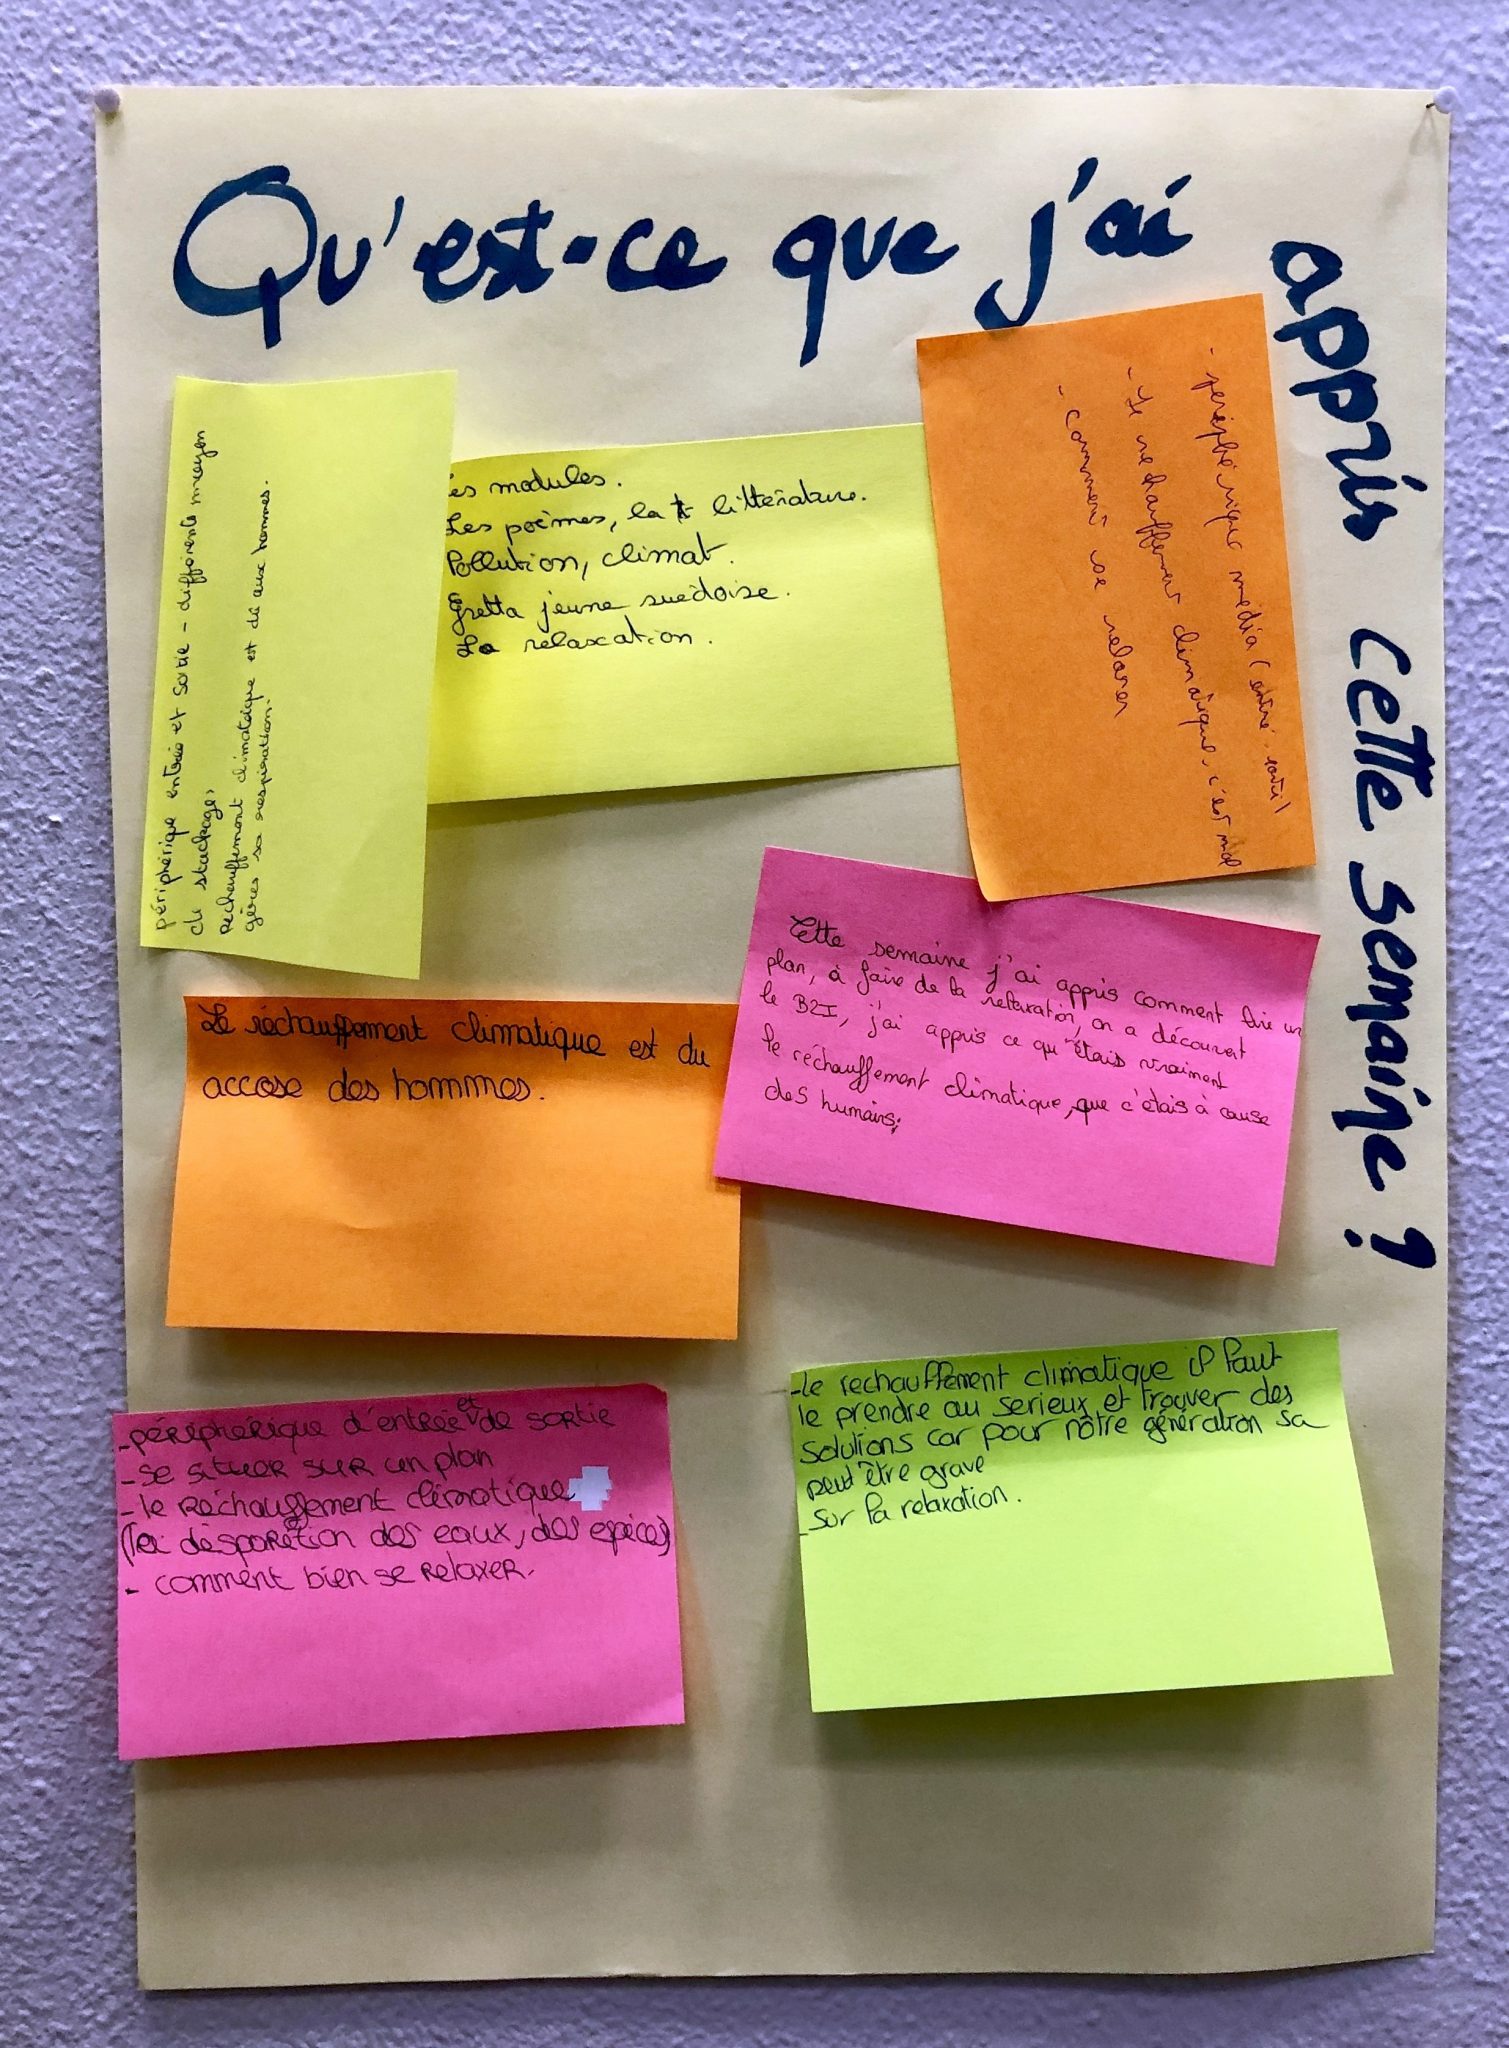 Qu'est-ce que j'ai
appris cette semaine ?
périphérique entrée et sortie - différents moyen
de stockage,
rechauffement climatique est dû aux hommes.
gérer sa respiration.
es modules.
Les poèmes, la littérature.
Pollution, climat.
Gretta jeune suédoise.
La relaxation.
- périphérique média (entré, sorti)
- Le rechauffement climatique, c'est mal
- comment se relaxer
Cette semaine j'ai appris comment faire un
plan, à faire de la relaxation, on a découvert
le B2I, j'ai appris ce qu'étais vraiment
le réchauffement climatique, que c'étais à cause
des humains,
Le réchauffement climatique est du
accose des hommes.
- périphérique d'entrée et de sortie
- se situer sur un plan
- le réchauffement climatique
(la désparétion des eaux, des espèces)
- comment bien se relaxer.
- Le rechauffement climatique il faut
le prendre au serieux et trouver des
solutions car pour nôtre génération sa
peut être grave
- sur la relaxation.